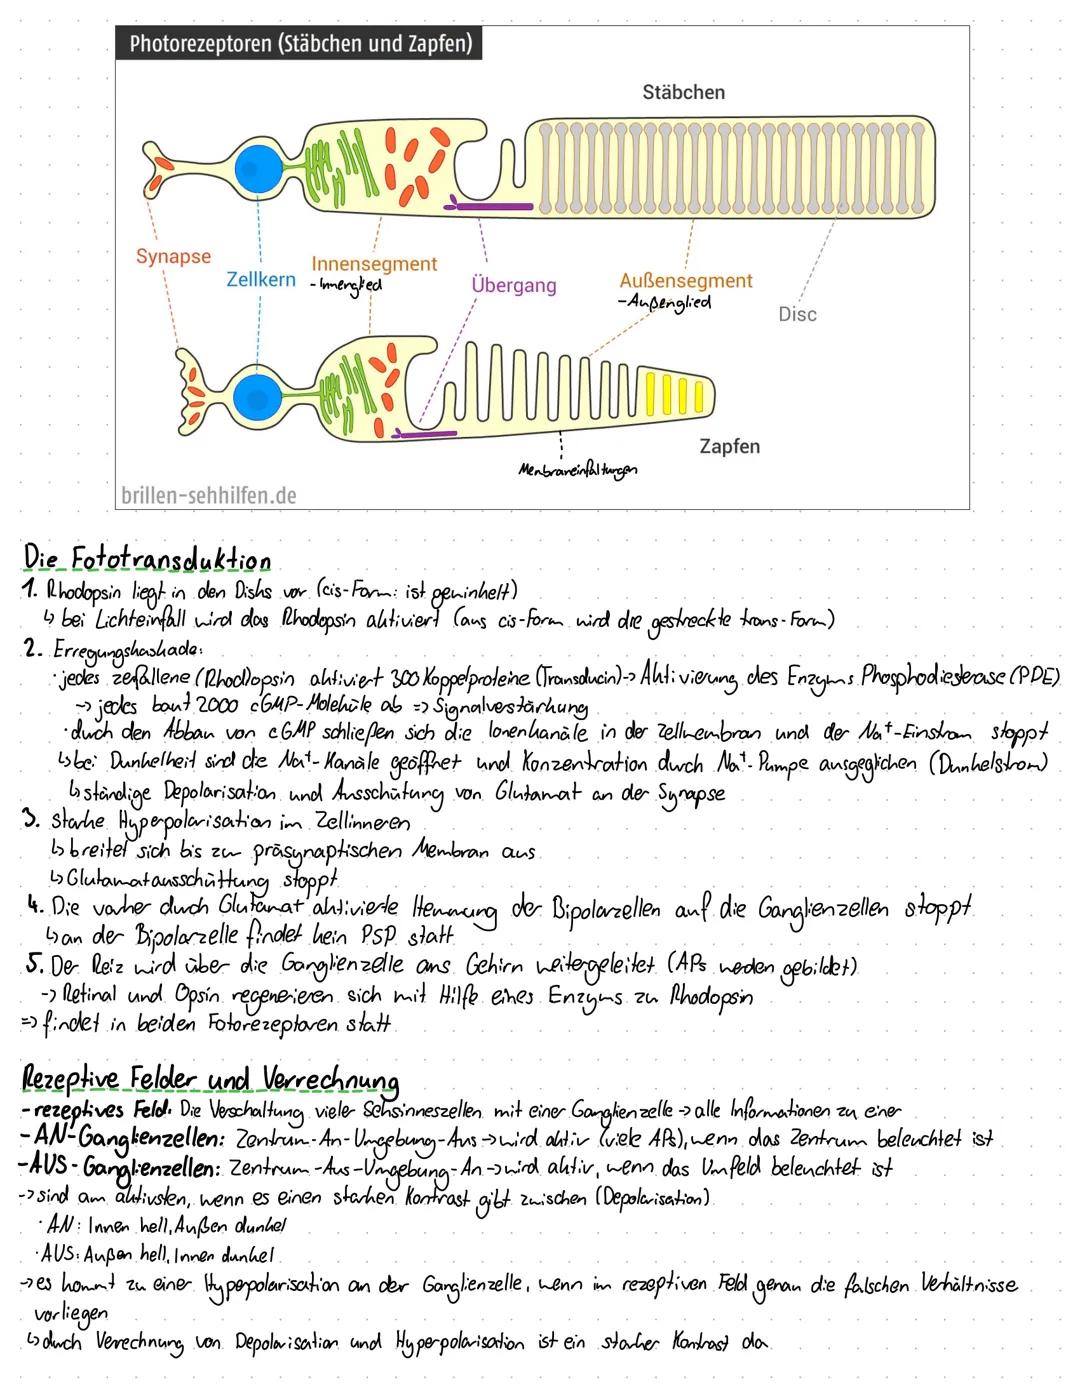 Photorezeptoren (Stäbchen und Zapfen)
Stäbchen
Synapse
Zellkern
Innensegment
- Innenglied
Übergang
Außensegment
- Außenglied
Disc
Zapfen
Membraneinfaltungen
brillen-sehhilfen.de
Die Fototransduktion
1. Rhodopsin liegt in den Disks vor (cis-Form: ist gewinkelt)
↳ bei Lichteinfall wird das Rhodopsin aktiviert (aus cis-Form wird die gestreckte trans-Form)
2. Erregungskaskade:
· jedes zerfallene (Rhod)opsin aktiviert 300 Koppelproteine (Transducin) -> Aktivierung des Enzyms Phosphodiesterase (PDE)
-> jedes baut 2000 cGMP-Moleküle ab => Signalverstärkung
· durch den Abbau von cGMP schließen sich die Ionenkanäle in der Zellmembran und der Na⁺-Einstrom stoppt
↳ bei Dunkelheit sind die Na⁺-Kanäle geöffnet und Konzentration durch Na⁺-Pumpe ausgeglichen (Dunkelstrom)
↳ ständige Depolarisation und Ausschütung von Glutamat an der Synapse
3. starke Hyperpolarisation im Zellinneren
↳ breitet sich bis zur präsynaptischen Membran aus
↳ Glutamatausschüttung stoppt
4. Die vorher durch Glutamat aktivierte Hemmung der Bipolarzellen auf die Ganglienzellen stoppt
↳ an der Bipolarzelle findet kein PSP statt
5. Der Reiz wird über die Ganglienzelle ans Gehirn weitergeleitet (APs werden gebildet)
-> Retinal und Opsin regenerieren sich mit Hilfe eines Enzyms zu Rhodopsin
=> findet in beiden Fotorezeptoren statt
Rezeptive Felder und Verrechnung
- rezeptives Feld: Die Verschaltung vieler Sehsinneszellen mit einer Ganglienzelle -> alle Informationen zu einer
- AN-Ganglienzellen: Zentrum-An-Umgebung-Aus -> wird aktiv (viele APs), wenn das Zentrum beleuchtet ist
- AUS-Ganglienzellen: Zentrum-Aus-Umgebung-An -> wird aktiv, wenn das Umfeld beleuchtet ist
-> sind am aktivsten, wenn es einen starken Kontrast gibt zwischen (Depolarisation)
· AN: Innen hell, Außen dunkel
· AUS: Außen hell, Innen dunkel
-> es kommt zu einer Hyperpolarisation an der Ganglienzelle, wenn im rezeptiven Feld genau die falschen Verhältnisse
vorliegen
↳ durch Verrechnung von Depolarisation und Hyperpolarisation ist ein starker Kontrast da